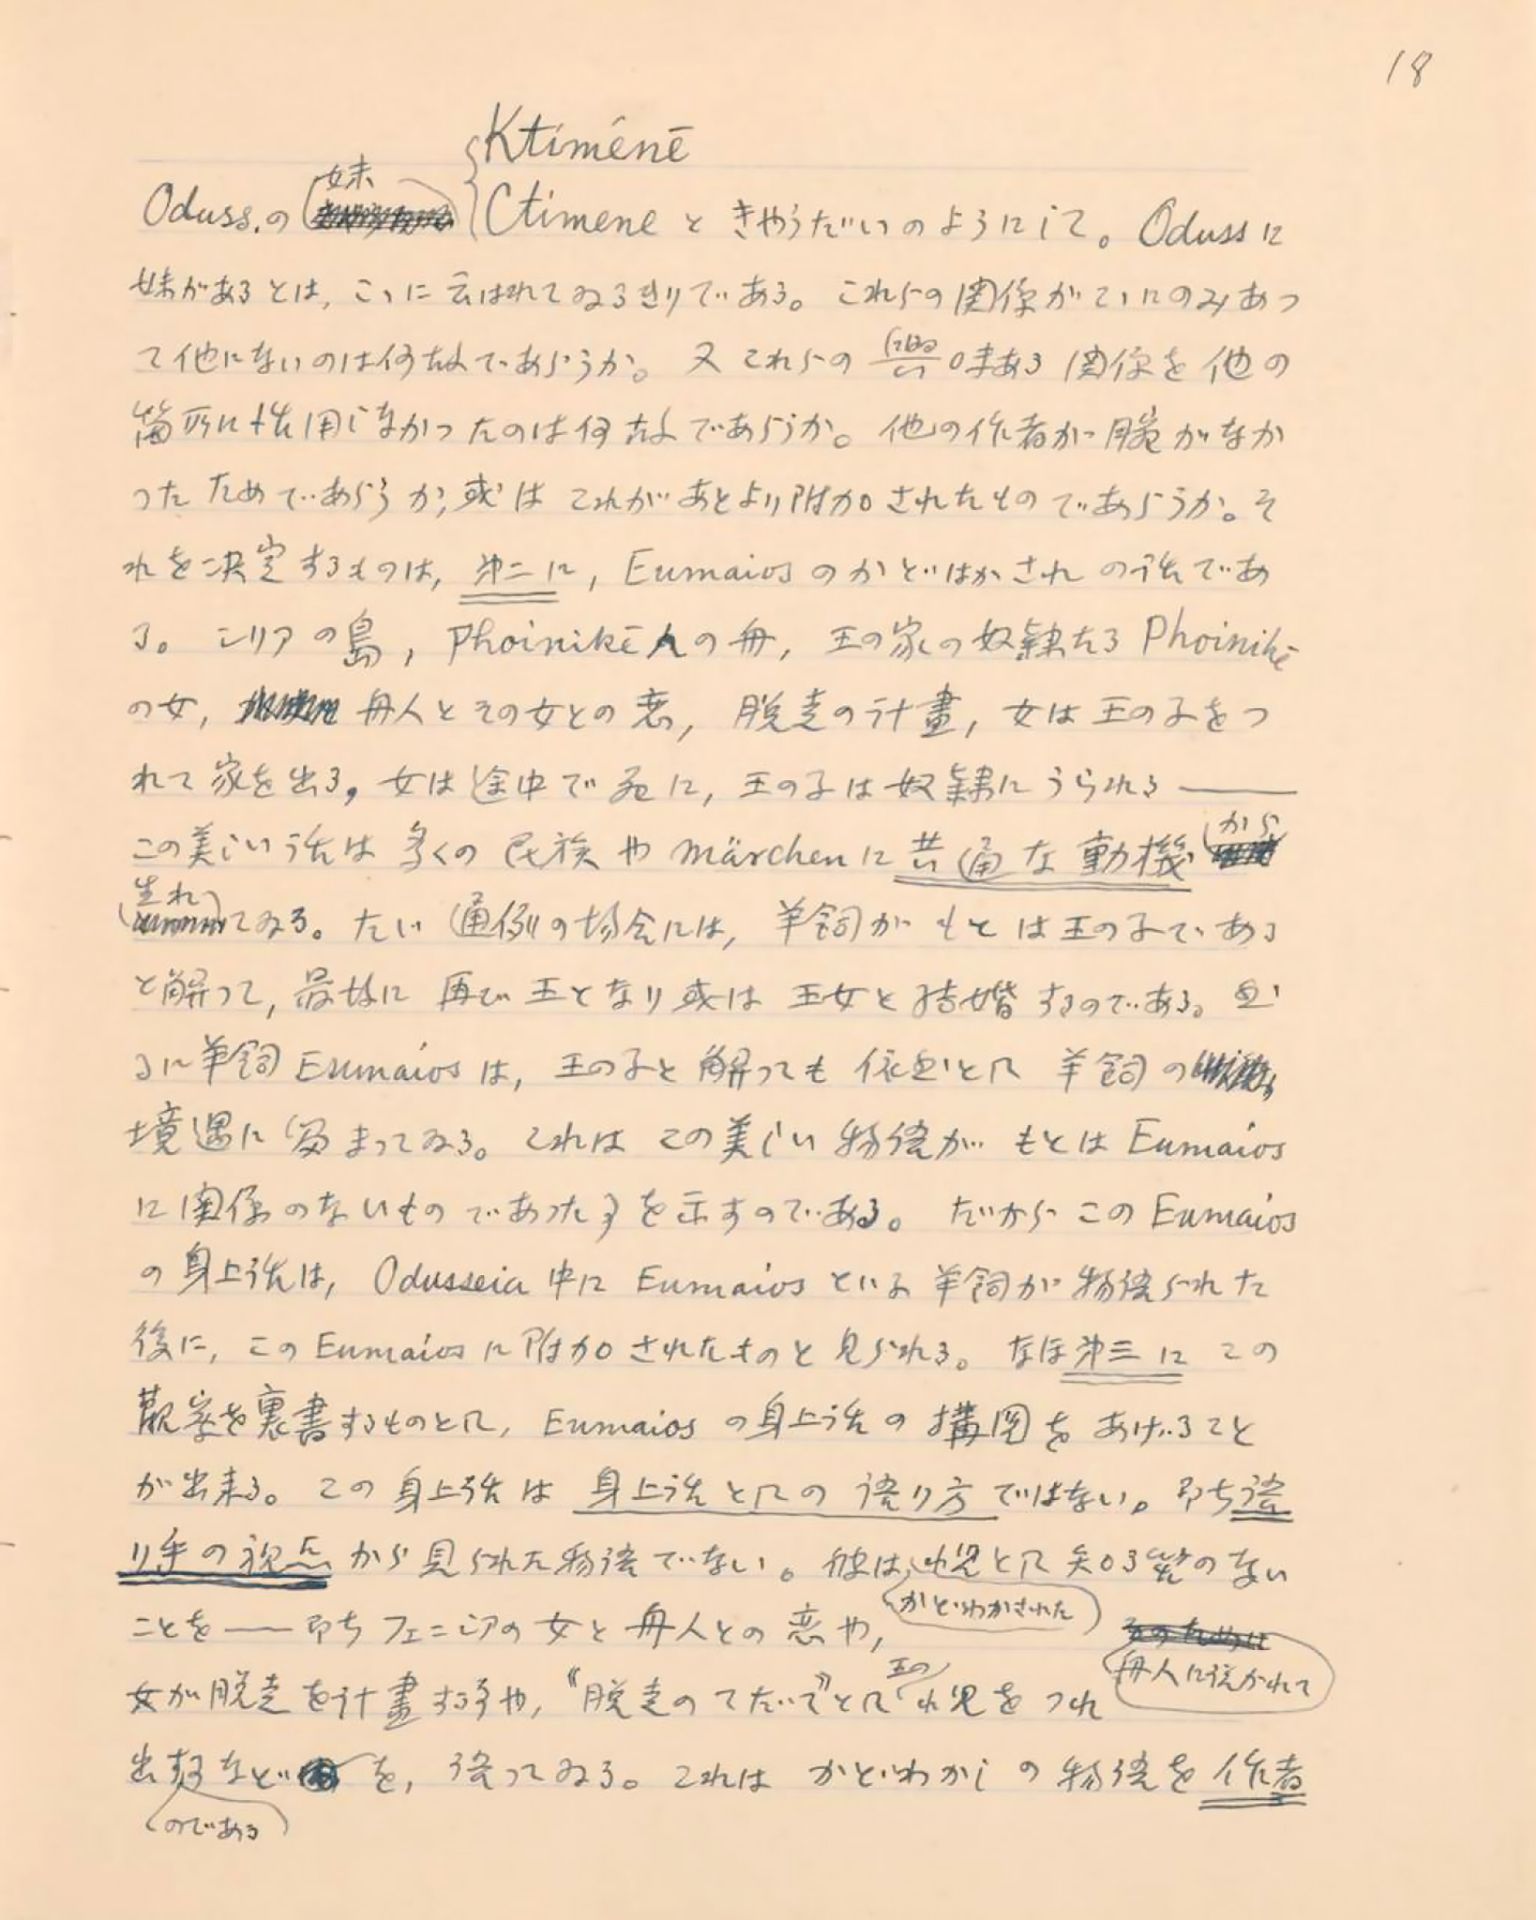 18
Ktiménē
妹
Oduss.の Ctimene と きやうだいのようにして。Odussに
妹があるとは, こゝに云はれてゐるきりである。これらの関係がこゝにのみあつ
て他にないのは何故であらうか。又これらの興味ある関係を他の
箇所に活用しなかつたのは何故であらうか。他の作者が腕がなか
つたためであらうか, 或は これがあとより附加されたものであらうか。そ
れを決定するものは, 第二に, Eumaiosのかどはかされの話であ
る。シリアの島, Phoinikē人の舟, 王の家の奴隷たるPhoinikē
の女, 舟人とその女との恋, 脱走の計畫, 女は王の子をつ
れて家を出る, 女は途中で死に, 王の子は奴隷にうられる——
この美しい話は多くの民族やmärchenに共通な動機から
生れてゐる。たゞ通例の場合には, 羊飼がもとは王の子である
と解つて, 最後に再び王となり或は王女と結婚するのである。然
るに羊飼Eumaiosは, 王の子と解つても依然として羊飼の
境遇に留まつてゐる。これはこの美しい物語がもとはEumaios
に関係のないものであつた事を示すのである。だからこのEumaios
の身上話は, Odusseia中にEumaiosといふ羊飼が物語られた
後に, このEumaiosに附加されたものと見られる。なほ第三にこの
観察を裏書するものとして, Eumaiosの身上話の構図をあげること
が出来る。この身上話は身上話としての語り方ではない。即ち語
り手の視点から見られた物語でない。彼は小児として知る筈のない
かどわかされた
ことを——即ちフェニシアの女と舟人との恋や,
そのために
舟人に説かれて
女が脱走を計畫する事や, 《脱走のてだて》として王の小児をつれ
出すなどを, 語つてゐる。これはかどわかしの物語を作者
のである